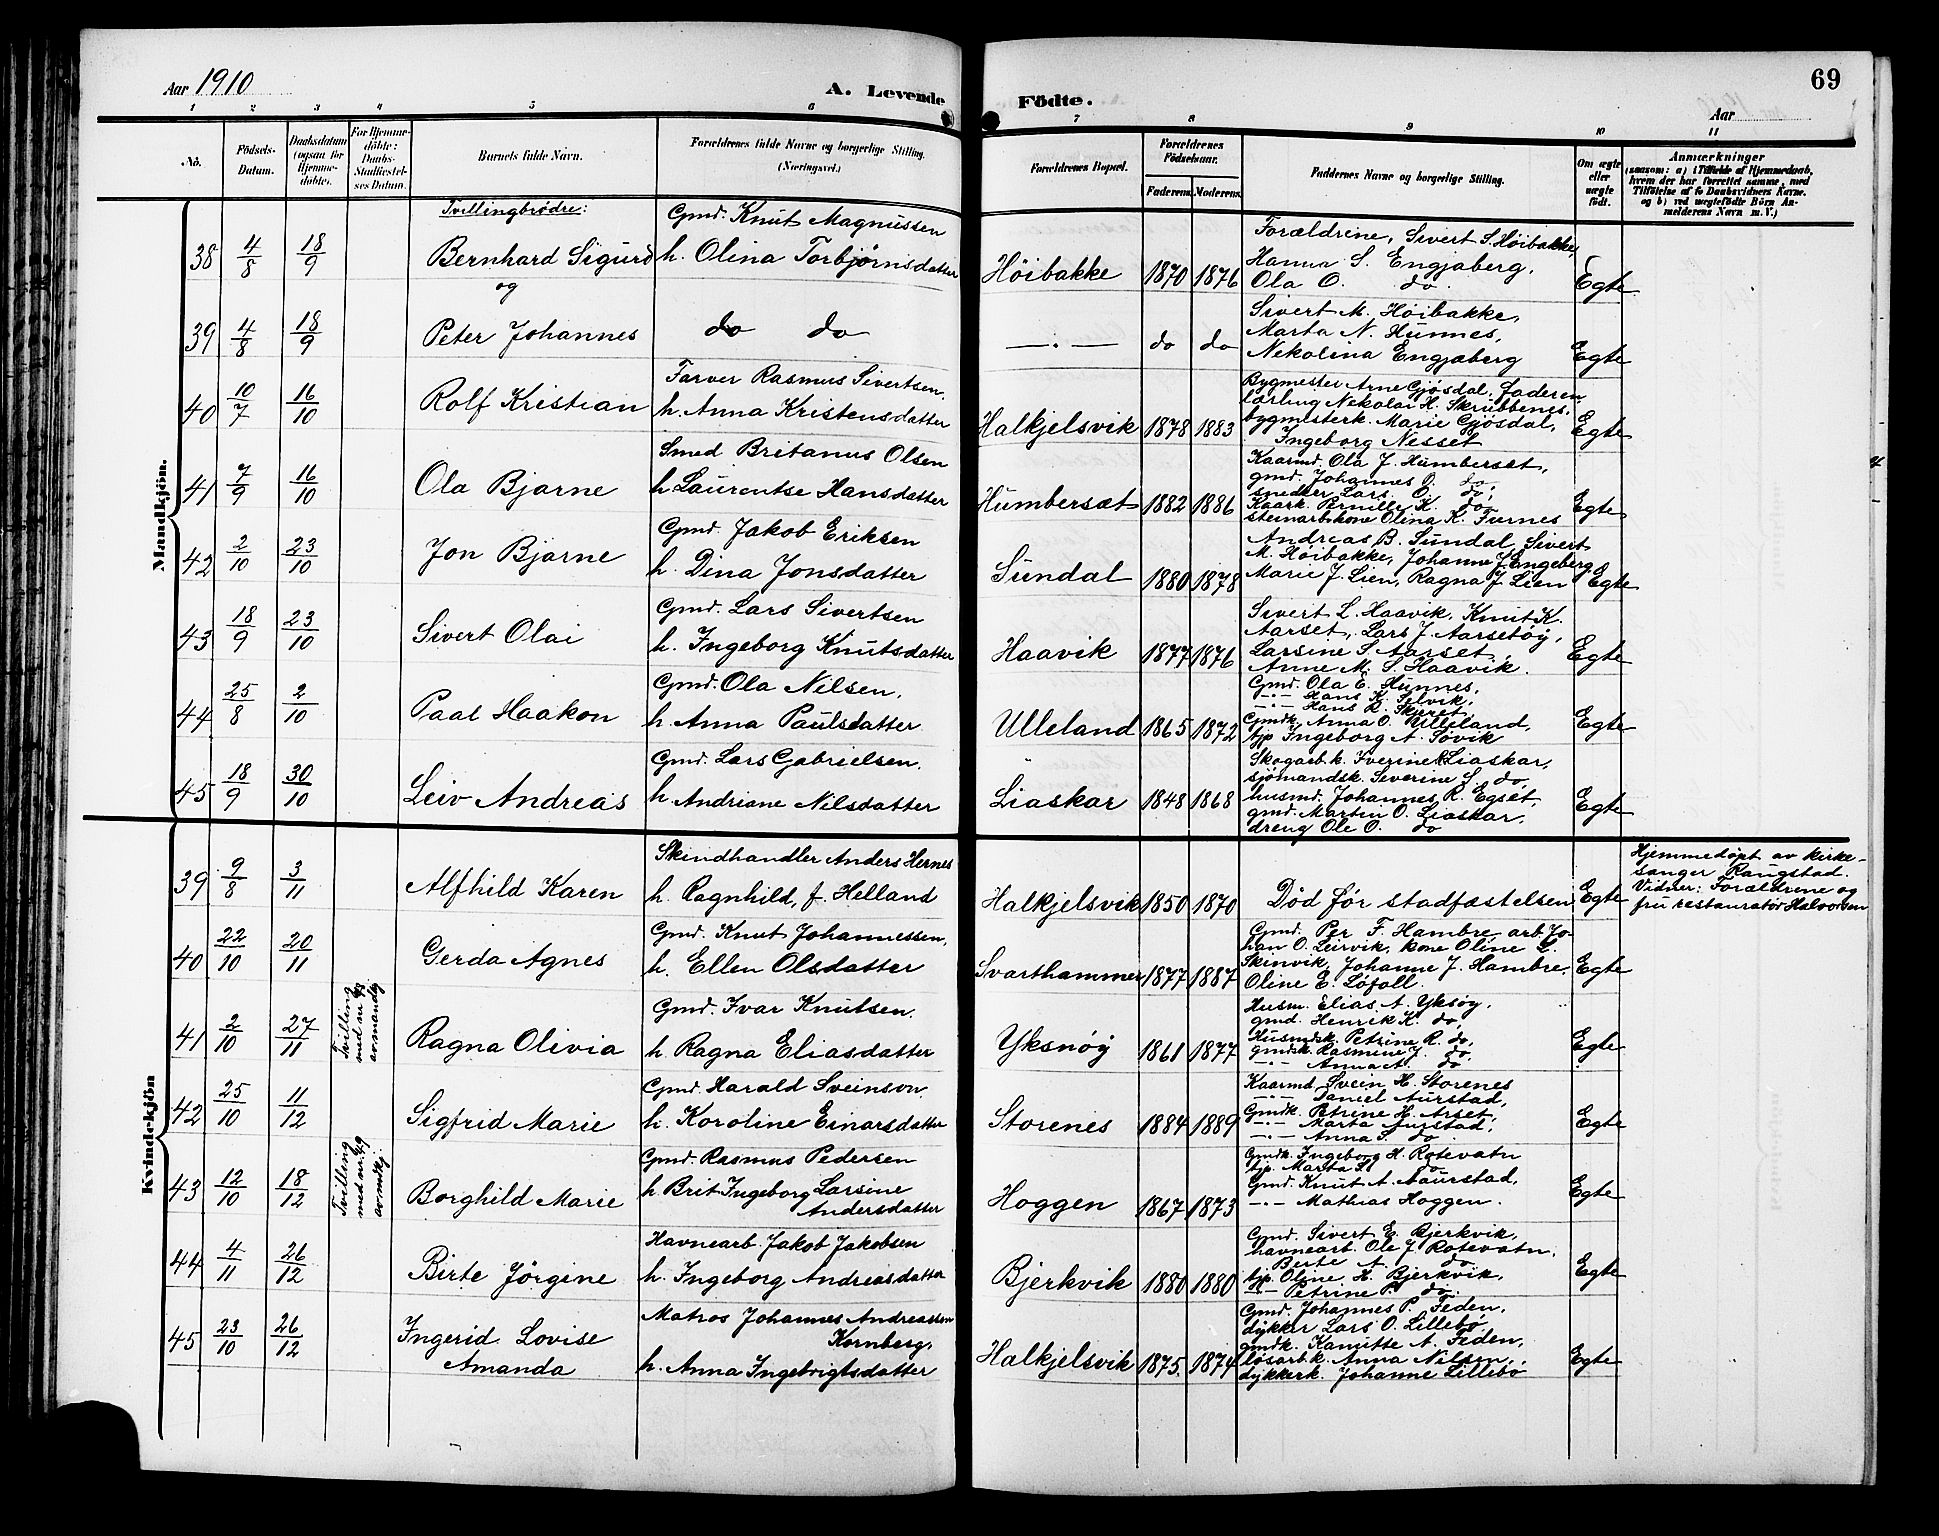 Aar 1910
A. Levende
Födte.
69
Aar
1 2 3 4 5 6 7 8 9 10 11
No.
Födsels-Datum.
Daabsdatum (ogsaa for Hjemmedöbte).
For Hjemmedöbte: Daabs-Stadfæstelses Datum.
Barnets fulde Navn.
Forældrenes fulde Navne og borgerlige Stilling. (Næringsvei.)
Forældrenes Bopæl.
Forældrenes Födselsaar.
Faderens. Moderens.
Faddernes Navne og borgerlige Stilling.
Om ægte eller uægte födt.
Anmærkninger
(saasom: a) i Tilfælde af Hjemmedaab, hvem der har forrettet samme, med Tilföielse af to Daabsvidners Navne. og b) ved uægtefödte Börn Anmelderens Navn m. V.)
Mandkjön.
Tvillingbrödre:
38 4/8 18/9 Bernhard Sigurd og
Gmd. Knut Magnussen
h. Olina Torbjørnsdatter
Höibakke 1870 1876
Forældrene, Sivert S. Höibakke,
Hanna S. Engjaberg,
Ola O. do.
Egte
39 4/8 18/9 Peter Johannes
do do
—„— do do
Sivert M. Höibakke,
Marta N. Hunnes,
Nekolina Engjaberg
Egte
40 10/7 16/10 Rolf Kristian
Farver Rasmus Sivertsen,
h. Anna Kristensdatter
Halkjelsvik 1878 1883
Bygmester Arne Gjösdal, Faderen
lærling Nekolai H. Skrubbenes,
bygmesterk. Marie Gjösdal,
Ingeborg Nesset
Egte
41 7/9 16/10 Ola Bjarne
Smed Britanus Olsen
h. Laurentse Hansdatter
Humbersæt 1882 1886
Kaarmd. Ola J. Humberset,
gmd. Johannes O. do,
snedker Lars O. do,
Kaark. Pernille K. do,
steinarb.kone Olina K. Fvernes
Egte
42 2/10 23/10 Jon Bjarne
Gmd. Jakob Eriksen
h. Dina Jonsdatter
Sundal 1880 1878
Andreas B. Sundal, Sivert
M. Höibakke, Johanne J. Engeberg
Marie J. Lien, Ragna J. Lien
Egte
43 18/9 23/10 Sivert Olai
Gmd. Lars Sivertsen
h. Ingeborg Knutsdatter
Haavik 1877 1876
Sivert L. Haavik, Knut K.
Aarset, Lars J. Aarsetöy,
Larsine S. Aarset,
Anne M. S. Haavik.
Egte
44 25/8 2/10 Paal Haakon
Gmd. Ola Nilsen,
h. Anna Paulsdatter
Ulleland 1865 1872
Gmd. Ola E. Hunnes,
—„— Hans K. Selvik,
—„— Hans K. Skjeret,
Gmdk. Anna O. Ulleland,
tjp Ingeborg A. Søvik
Egte
45 18/9 30/10 Leiv Andreas
Gmd. Lars Gabrielsen.
h. Andriane Nilsdatter
Liaskar 1848 1868
Skogarb.k. Iverine Liaskar,
sjömandsk. Severine S. do,
husmd. Johannes R. Egset,
gmd. Martin O. Liaskar,
dreng Ole O. do
Egte
Kvindekjön
39 9/8 3/11 Alfhild Karen
Skindhandler Anders Hernes
h. Ragnhild, f. Helland
Halkjelsvik 1850 1870
Död för stadfæstelsen
Egte
Hjemmedøpt av kirke-
sanger Raugstad.
Vidner: Forældrene og
fru restauratör Halvorsen
40 22/10 20/11 Gerda Agnes
Gmd. Knut Johannessen,
h. Ellen Olsdatter
Svarthammer 1877 1887
Gmd. Per F. Hambre, arb. Jo-
han O. Leirvik, kone Oline L.
Skinvik, Johanne J. Hambre,
Oline E. Løfoll.
Egte
41 2/10 27/11
Tvilling
med nr. 48
av mandkj
Ragna Olivia
Gmd. Ivar Knutsen.
h. Ragna Eliasdatter
Yksnöy 1861 1877
Husm. Elias A. Yksöy,
gmd. Henrik K. do,
Husmdsk. Petrine R. do,
gmdsk. Rasmine J. do.
—„— Anna A. do
Egte
42 25/10 11/12 Sigfrid Marie
Gmd. Harald Sveinson.
h. Koroline Einarsdatter
Storenes 1884 1889
Kaarmd. Svein H. Storenes
—„— Daniel Aurstad,
Gmdk. Petrine H. Arset,
—„— Marta Aurstad,
—„— Anna S. do
Egte
43 12/10 18/12
Tvilling
med nr. 49
av mdkj.
Borghild Marie
Gmd. Rasmus Pedersen
h. Brit Ingeborg Larsine
Andersdatter
Hoggen 1867 1873
Gmdk. Ingeborg H. Rotevatn
tjp. Marta S. do
Gmd. Knut A. Aurstad,
—„— Mathias Hoggen.
Egte
44 4/11 26/12 Birte Jörgine
Havnearb. Jakob Jakobsen
h. Ingeborg Andreasdatter
Bjerkvik 1880 1880
Gmd. Sivert E. Bjerkvik,
havnearb. Ole J. Rotevatn,
Berte A. do
tjp. Oline K. Bjerkvik,
—„— Petrine P. do.
Egte
45 23/10 26/12 Ingerid Lovise
Amanda
Matros Johannes Andreassen
Kornberg,
h. Anna Ingebrigtsdatter
Halkjelsvik 1875. 1874
Gmd. Johannes P. Feden,
dykker Lars O. Lillebö
gmdk. Kanutte A. Feden,
løsarb.k. Anna Nilsen,
dykkerk. Johanne Lillebö
Egte
Kvindekjön